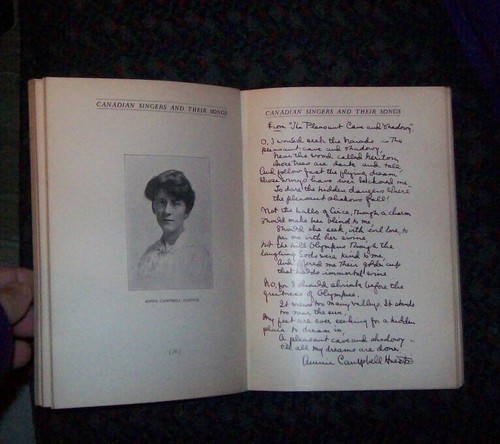 CANADIAN SINGERS AND THEIR SONGS
ANNIE CAMPBELL HUESTIS
CANADIAN SINGERS AND THEIR SONGS
From "The Pleasant Cave and Shadowy"
O, I would seek the Naiads — The
pleasant cave and shadowy,
Near the wood called
trees are dark and tall,
And follow just the flying dream
wings have ever beckoned me
To dare the hidden dangers where
the pleasant shadows fall!
Not the halls of Circe, though a charm
should make her blind to me,
Should she seek, with evil love, to
pen me with her swine,
Not the hill Olympus though the
laughing Gods were kind to me,
And offered me their golden cup
that holds immortal wine
No, for I should shrink before the
greatness of Olympus,
It views too many valleys, it stands
too near the sun,
My feet are ever seeking for a hidden
place to dream in,
A pleasant cave and shadowy —
till all my dreams are done.
Annie Campbell Huestis